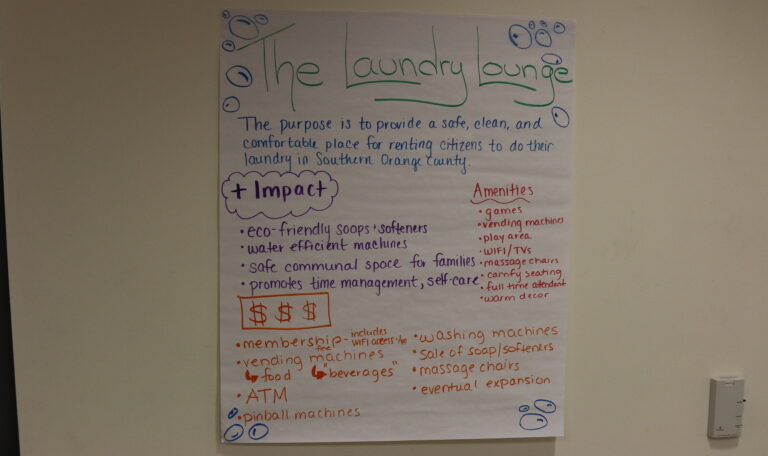 The Laundry Lounge
The purpose is to provide a safe, clean, and
comfortable place for renting citizens to do their
laundry in Southern Orange County.
+ Impact
• eco-friendly soaps + softeners
• water efficient machines
• safe communal space for families
• promotes time management, self-care
Amenities
• games
• vending machines
• play area
• WIFI/TVs
• massage chairs
• comfy seating
• full time attendent
• warm decor
$ $ $
• membership fee - includes
WIFI access
• vending machines
food "beverages"
• ATM
• pinball machines
• washing machines
• Sale of soap/softeners
• massage chairs
• eventual expansion